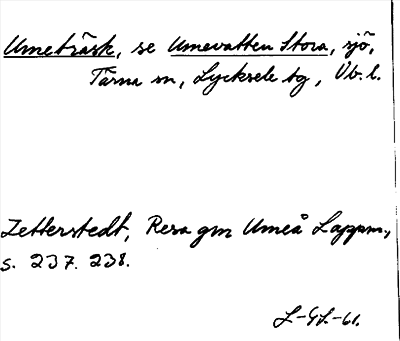 Umeträsk, se Umevatten Stora, sjö,
Tärna sn, Lycksele tg, Vb. l.
Zetterstedt, Resa gm Umeå Lappm.,
s. 237. 238.